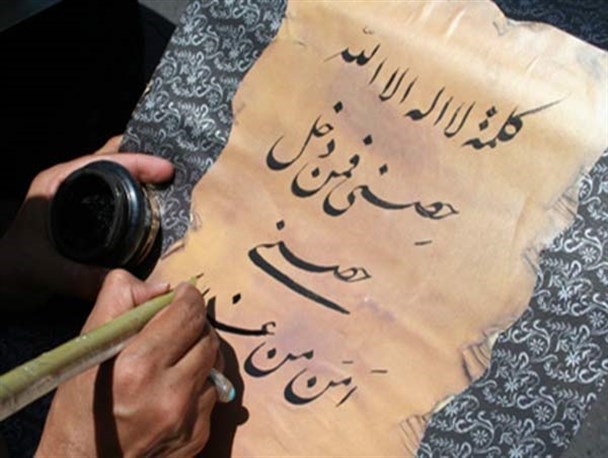 کلمة لا اله الا الله
حِصنی فمن دخل
حصنی
اَمَن من